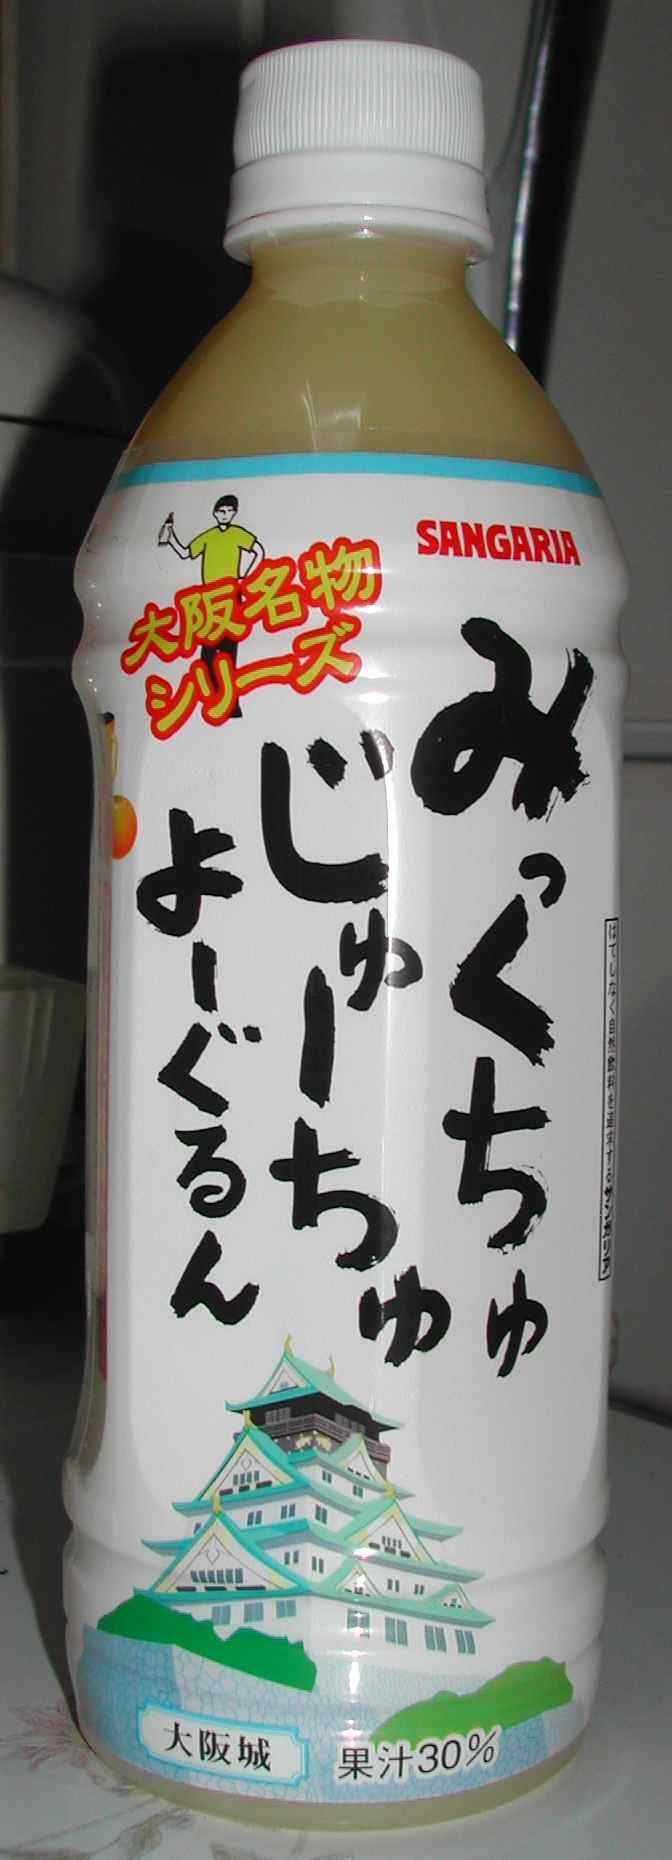 SANGARIA
大阪名物
シリーズ
みっくちゅ
じゅーちゅ
よーぐるん
はてしなく自然飲料を追求するサンガリア
大阪城
果汁30%